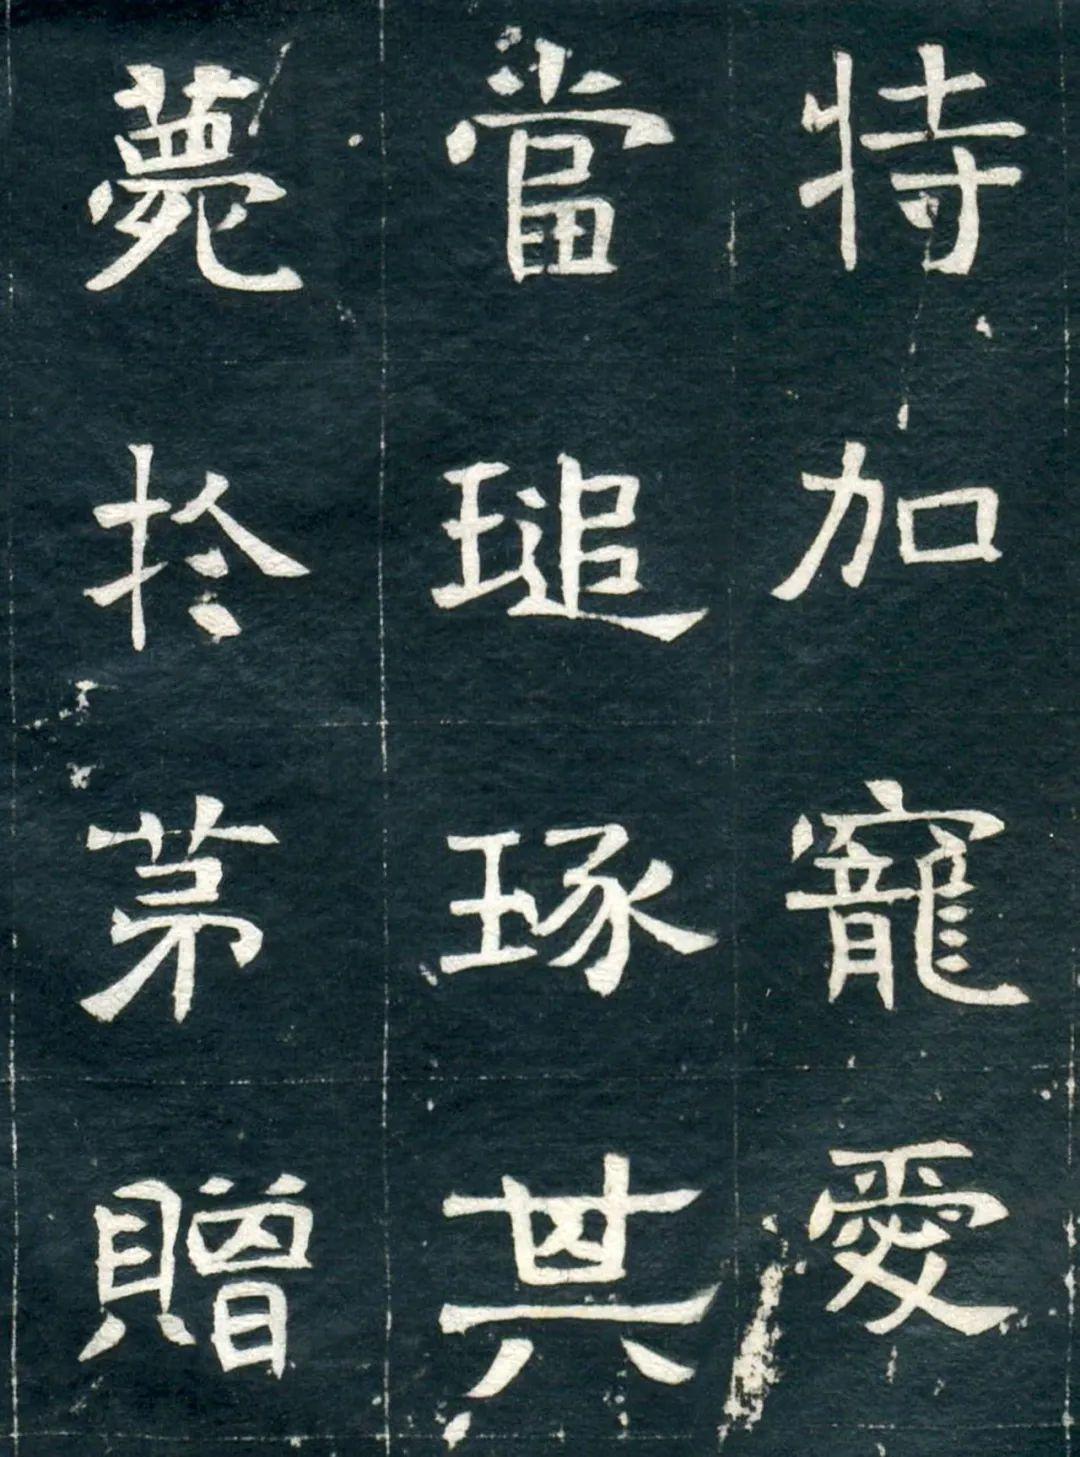 特加寵愛
當瑝琢其
薨扵第贈